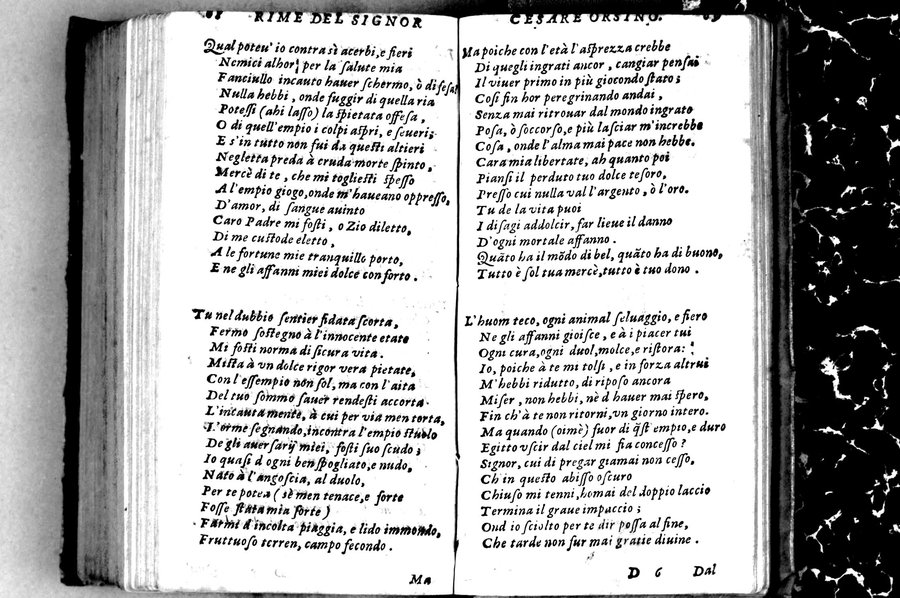 68 RIME DEL SIGNOR
Qual poteu' io contra sì acerbi, e fieri
Nemici alhor, per la salute mia
Fanciullo incauto hauer schermo, ò difesa?
Nulla hebbi, onde fuggir di quella ria
Potessi (ahi lasso) la spietata offesa,
O di quell'empio i colpi aspri, e seueri.
E s'in tutto non fui da questi altieri
Negletta preda à cruda morte spinto,
Mercè di te, che mi togliesti spesso
A l'empio giogo, onde m'haueano oppresso,
D'amor, di sangue auinto
Caro Padre mi fosti, o Zio diletto,
Di me custode eletto,
A le fortune mie tranquillo porto,
E ne gli affanni miei dolce conforto.
Tu nel dubbio sentier fidata scorta,
Fermo sostegno à l'innocente etate
Mi fosti norma di sicura vita.
Mista à vn dolce rigor vera pietate,
Con l'essempio non sol, ma con l'aita
Del tuo sommo sauer rendesti accorta
L'incauta mente, à cui per via men torta,
L'orme segnando, incontra l'empio stuolo
De gli auersarij miei, fosti suo scudo;
Io quasi d ogni ben spogliato, e nudo,
Nato à l'angoscia, al duolo,
Per te potea (sè men tenace, e forte
Fosse stata mia sorte)
Farmi d'incolta piaggia, e lido immondo,
Fruttuoso terren, campo fecondo.
Ma
CESARE ORSINO. 69
Ma poiche con l'età l'asprezza crebbe
Di quegli ingrati ancor, cangiar pensai
Il viuer primo in più giocondo stato;
Così fin hor peregrinando andai,
Senza mai ritrouar dal mondo ingrato
Posa, ò soccorso, e più lasciar m'increbbe
Cosa, onde l'alma mai pace non hebbe.
Cara mia libertate, ah quanto poi
Piansi il perduto tuo dolce tesoro,
Presso cui nulla val l'argento, ò l'oro.
Tu de la vita puoi
I disagi addolcir, far lieue il danno
D'ogni mortale affanno.
Quãto ha il mõdo di bel, quãto ha di buono,
Tutto è sol tua mercè, tutto è tuo dono.
L'huom teco, ogni animal seluaggio, e fiero
Ne gli affanni gioisce, e à i piacer tui
Ogni cura, ogni duol, molce, e ristora:
Io, poiche à te mi tolsi, e in forza altrui
M'hebbi ridutto, di riposo ancora
Miser, non hebbi, nè d hauer mai spero,
Fin ch'à te non ritorni, vn giorno intero.
Ma quando (oimè) fuor di q̃st empio, e duro
Egitto vscir dal ciel mi fia concesso?
Signor, cui di pregar giamai non cesso,
Ch'in questo abisso oscuro
Chiuso mi tenni, homai del doppio laccio
Termina il graue impaccio;
Ond io sciolto per te dir possa al fine,
Che tarde non fur mai gratie diuine.
D 6 Dal